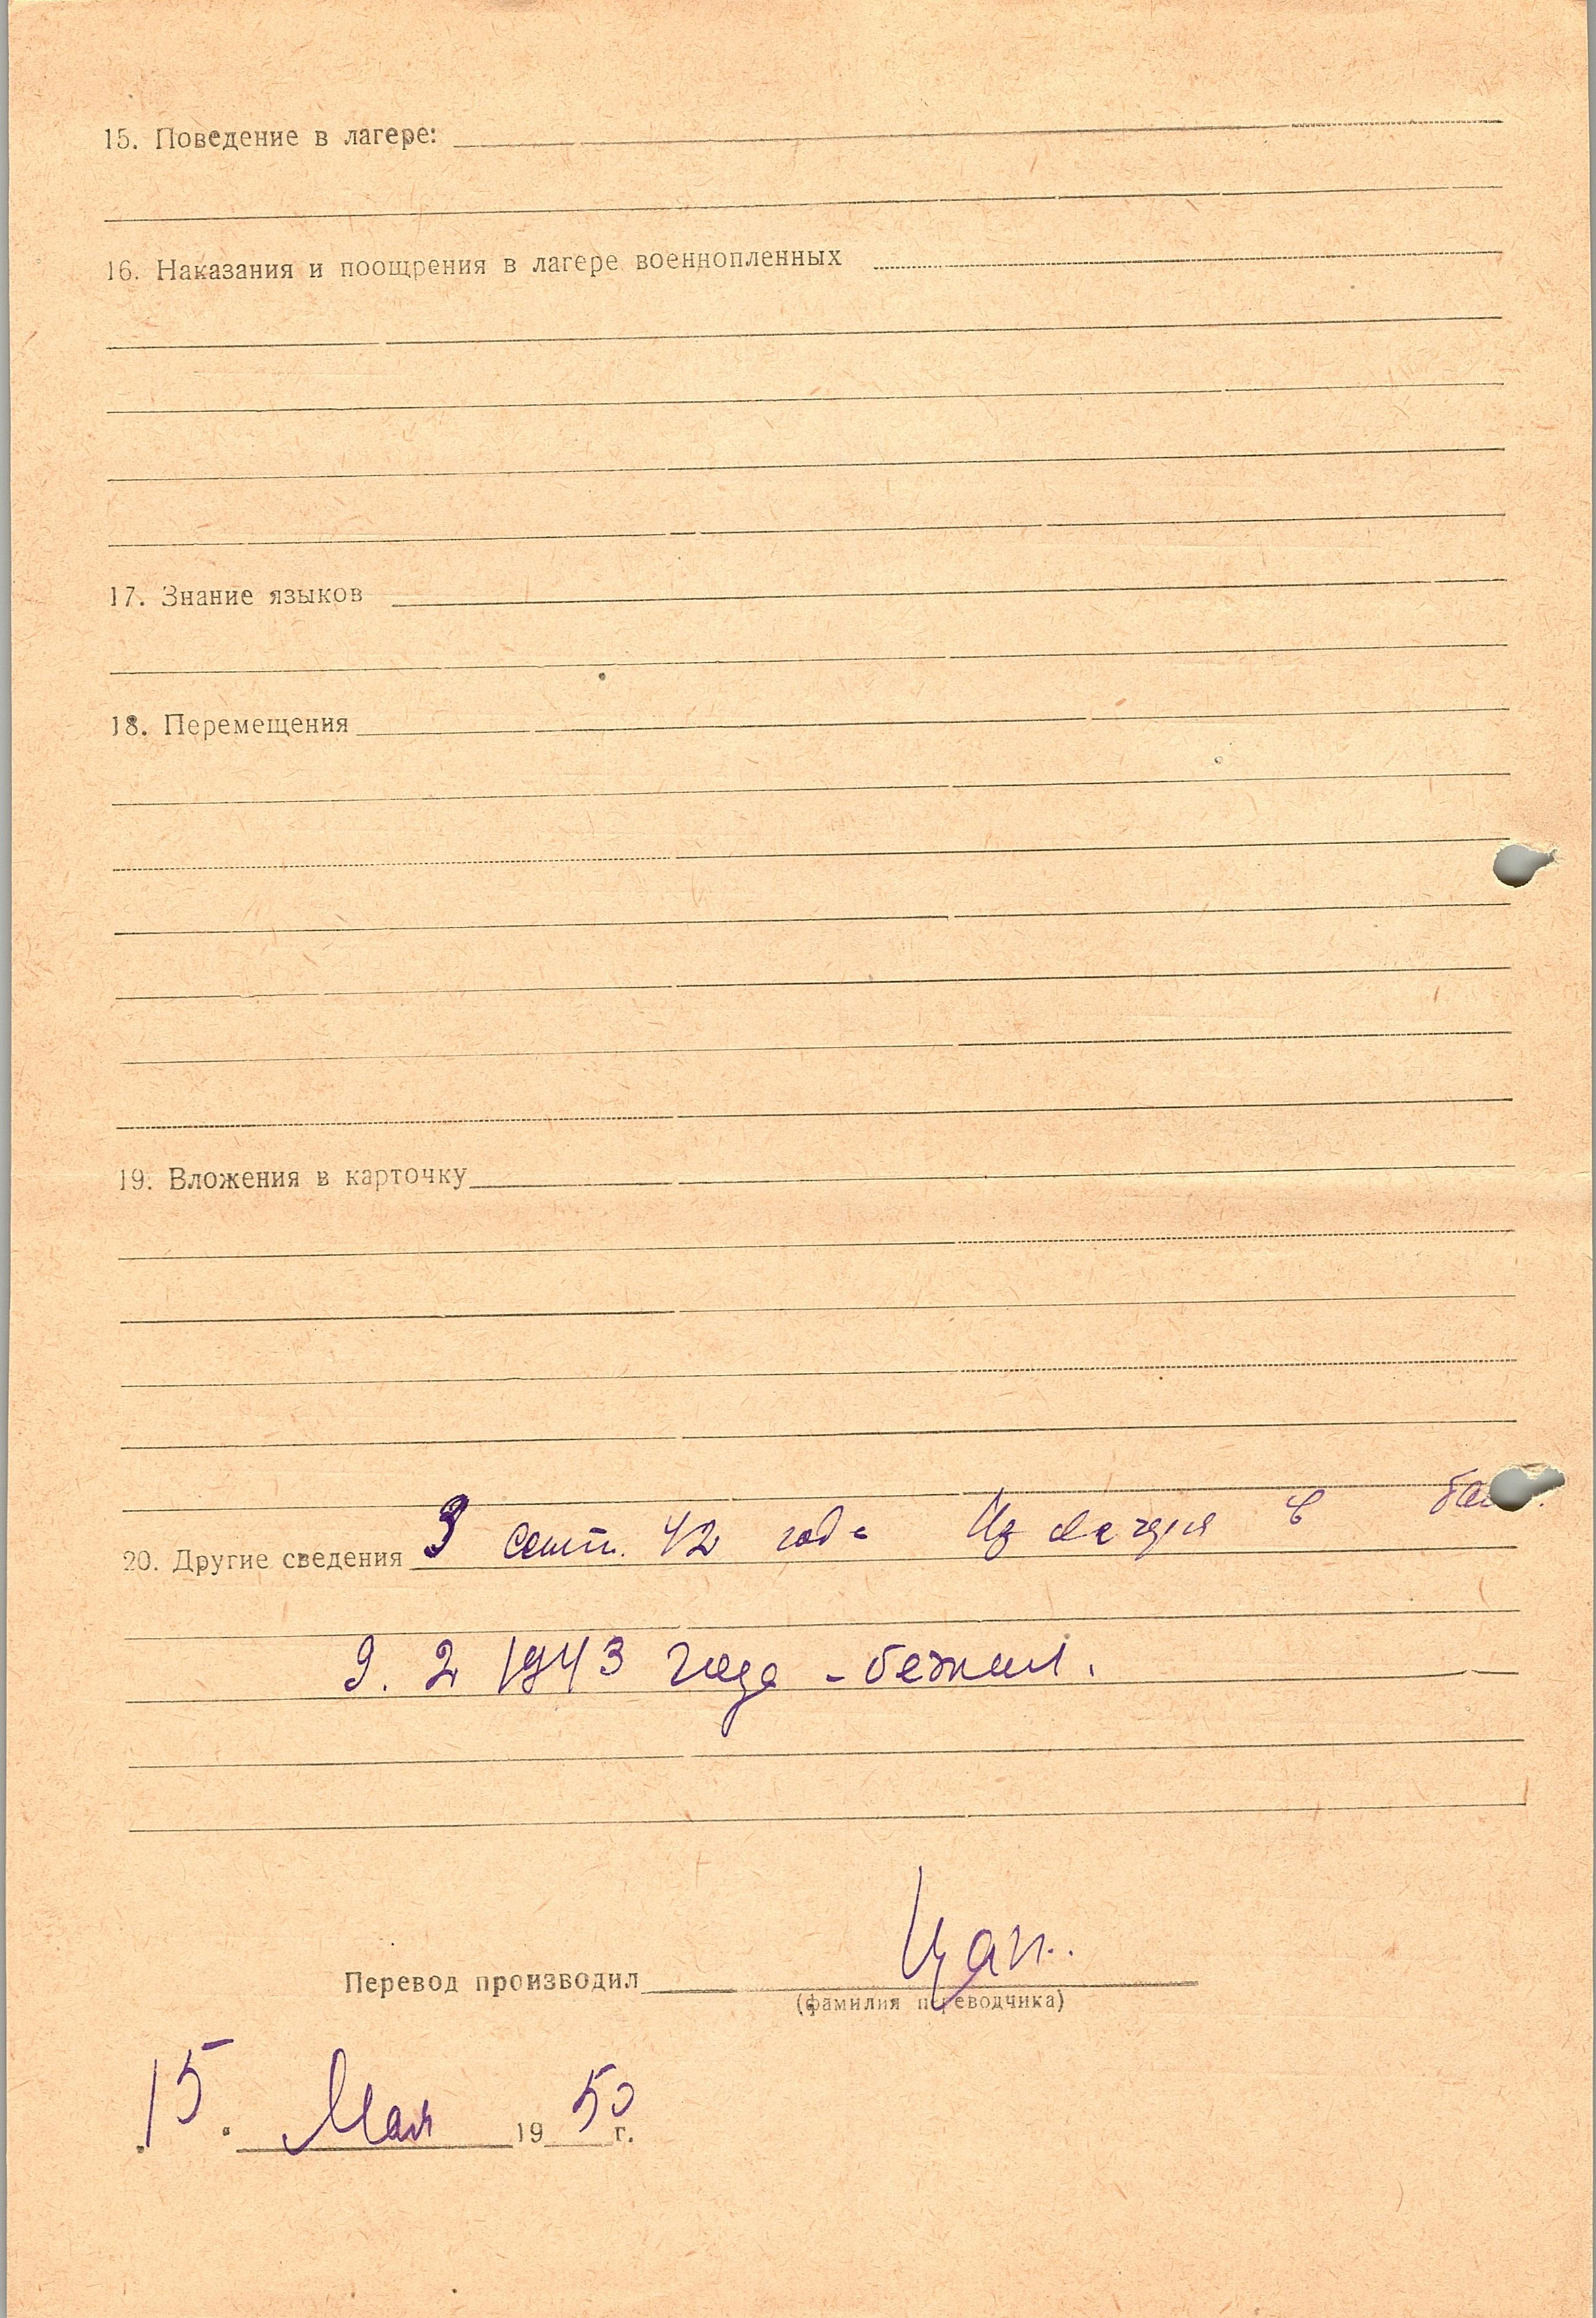 15. Поведение в лагере:
16. Наказания и поощрения в лагере военнопленных
17. Знание языков
18. Перемещения
19. Вложения в карточку
20. Другие сведения 9 сент. 42 года Из лагеря в
9. 2 1943 года - бежал.
Перевод производил Цап..
(фамилия переводчика)
15. Мая 1950 г.